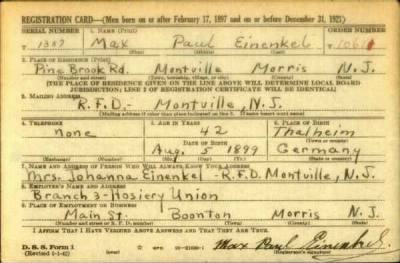 REGISTRATION CARD—(Men born on or after February 17, 1897 and on or before December 31, 1921)
SERIAL NUMBER 1. NAME (Print) ORDER NUMBER
1387 Max Paul Einenkel 10611
(First) (Middle) (Last)
2. PLACE OF RESIDENCE (Print)
Pine Brook Rd. Montville Morris N.J.
(Number and street) (Town, township, village, or city) (County) (State)
[THE PLACE OF RESIDENCE GIVEN ON THE LINE ABOVE WILL DETERMINE LOCAL BOARD
JURISDICTION; LINE 2 OF REGISTRATION CERTIFICATE WILL BE IDENTICAL]
3. MAILING ADDRESS
R.F.D.- Montville, N.J.
[Mailing address if other than place indicated on line 2. If same insert word same]
4. TELEPHONE 5. AGE IN YEARS 6. PLACE OF BIRTH
none 42 Thalheim
DATE OF BIRTH (Town or county)
Aug. 5 1899 Germany
(Mo.) (Day) (Yr.) (State or country)
7. NAME AND ADDRESS OF PERSON WHO WILL ALWAYS KNOW YOUR ADDRESS
Mrs. Johanna Einenkel - R.F.D. Montville, N.J.
8. EMPLOYER'S NAME AND ADDRESS
Branch 3-Hosiery Union
9. PLACE OF EMPLOYMENT OR BUSINESS
Main St. Boonton Morris N.J.
(Number and street or R. F. D. number) (Town) (County) (State)
I AFFIRM THAT I HAVE VERIFIED ABOVE ANSWERS AND THAT THEY ARE TRUE.
D. S. S. Form 1
(Revised 1-1-42) Max Paul Einenkel
(Registrant's signature)